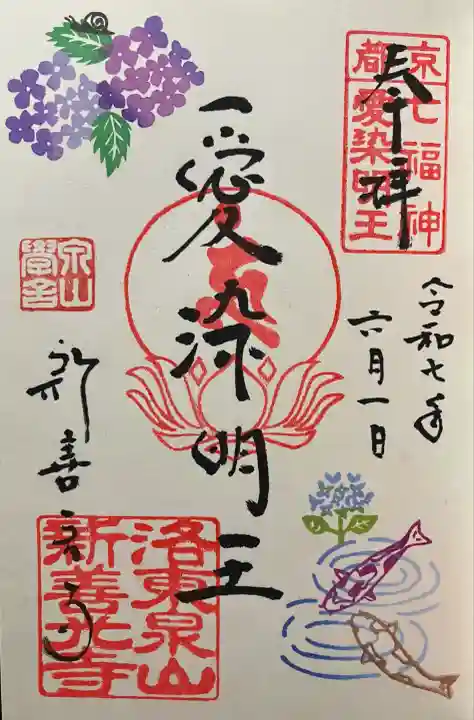 奉拝
京都七福神
愛染明王
令和七年
六月一日
愛染明王
泉山
新善光寺
洛東泉山
新善光寺